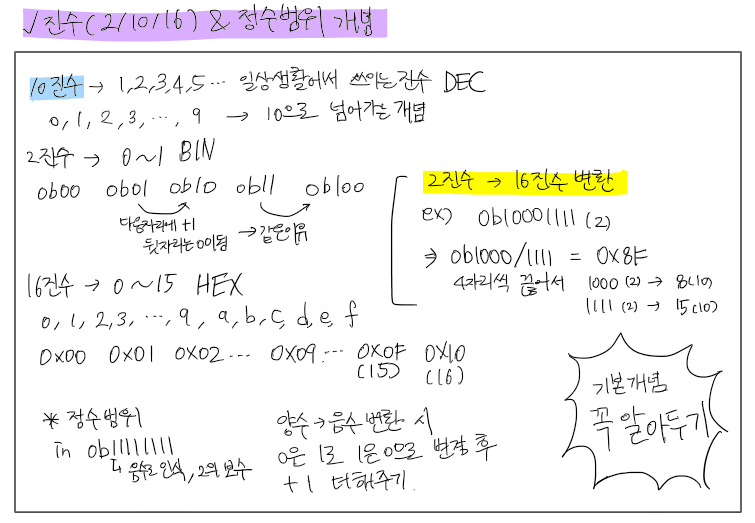 √진수(2/10/16) & 정수범위 개념
10진수 → 1,2,3,4,5... 일상생활에서 쓰이는 진수 DEC
0, 1, 2, 3, ..., 9 → 10으로 넘어가는 개념
2진수 → 0~1 BIN
0b00 0b01 0b10 0b11 0b100
다음자리에 +1
뒷자리는 0이됨 → 같은이유
2진수 → 16진수 변환
ex) 0b10001111 (2)
⇒ 0b1000/1111 = 0x8F
4자리씩 끊어서 1000 (2) → 8(10)
1111 (2) → 15(10)
16진수 → 0~15 HEX
0, 1, 2, 3, ..., 9, a, b, c, d, e, f
0x00 0x01 0x02 ... 0x09 ... 0x0F 0x10
(15) (16)
* 정수범위
in 0b11111111
↳ 음수로 인식, 2의 보수
양수 → 음수 변환 시
0은 1로 1은 0으로 변경 후
+1 더해주기.
기본개념
꼭 알아두기